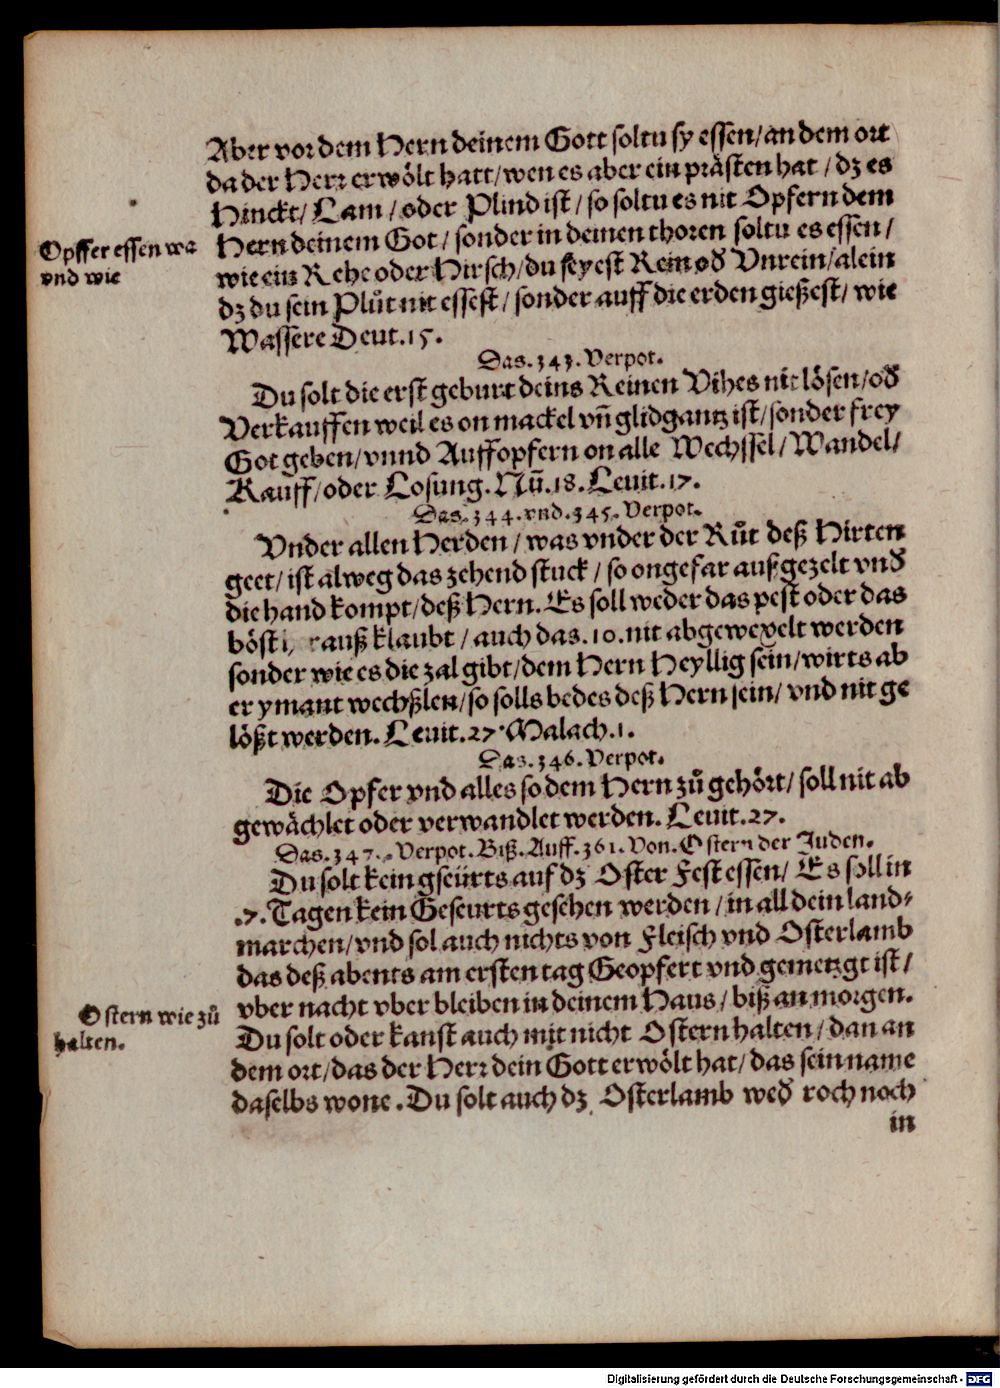 Aber vor dem Hern deinem Gott soltu sy essen/ an dem ort
da der Herr erwölt hatt/ wen es aber ein prästen hat / dz es
Hinckt/ Lam / oder Plind ist / so soltu es nit Opfern dem
Opffer essen wa
vnd wie
Hern deinem Got / sonder in deinen thoren soltu es essen /
wie ein Rehe oder Hirsch/ du seyest Rein oď Vnrein/ alein
dz du sein Plůt nit essest / sonder auff die erden gießest/ wie
Wassere Deut.15.
Das.343.Verpot.
Du solt die erst geburt deins Reinen Vihes nit lösen/ oď
Verkauffen weil es on mackel vñ glidgantz ist/ sonder frey
Got geben/ vnnd Auffopfern on alle Wechssel/ Wandel/
Kauff/ oder Losung. Nū.18. Leuit.17.
Das.344.vnd.345.Verpot.
Vnder allen Herden / was vnder der Růt deß Hirten
geet / ist alweg das zehend stuck / so ongefar außgezelt vnď
die hand kompt/ deß Hern. Es soll weder das pest oder das
böst rauß klaubt / auch das.10.nit abgewexelt werden
sonder wie es die zal gibt/ dem Hern Heyllig sein/ wirts ab
er ymant wechßlen/ so solls bedes deß Hern sein/ vnd nit ge
lößt werden. Leuit.27. Malach.1.
Das.346.Verpot.
Die Opfer vnd alles so dem Hern zů gehört/ soll nit ab
gewächlet oder verwandlet werden. Leuit.27.
Das.347.Verpot.Biß.Auff.361.Von.Ostern der Juden.
Du solt kein gseürts auf dz Oster Fest essen/ Es soll in
.7. Tagen kein Geseurts gesehen werden / in all dein land⸗
marchen/ vnd sol auch nichts von Fleisch vnd Osterlamb
das deß abents am ersten tag Geopfert vnd gemetzgt ist /
Ostern wie zů
halten.
vber nacht vber bleiben in deinem Haus / biß an morgen.
Du solt oder kanst auch mit nicht Ostern halten / dan an
dem ort/ das der Herr dein Gott erwölt hat/ das sein name
daselbs wone. Du solt auch dz Osterlamb weď roch noch
in
Digitalisierung gefördert durch die Deutsche Forschungsgemeinschaft - DFG